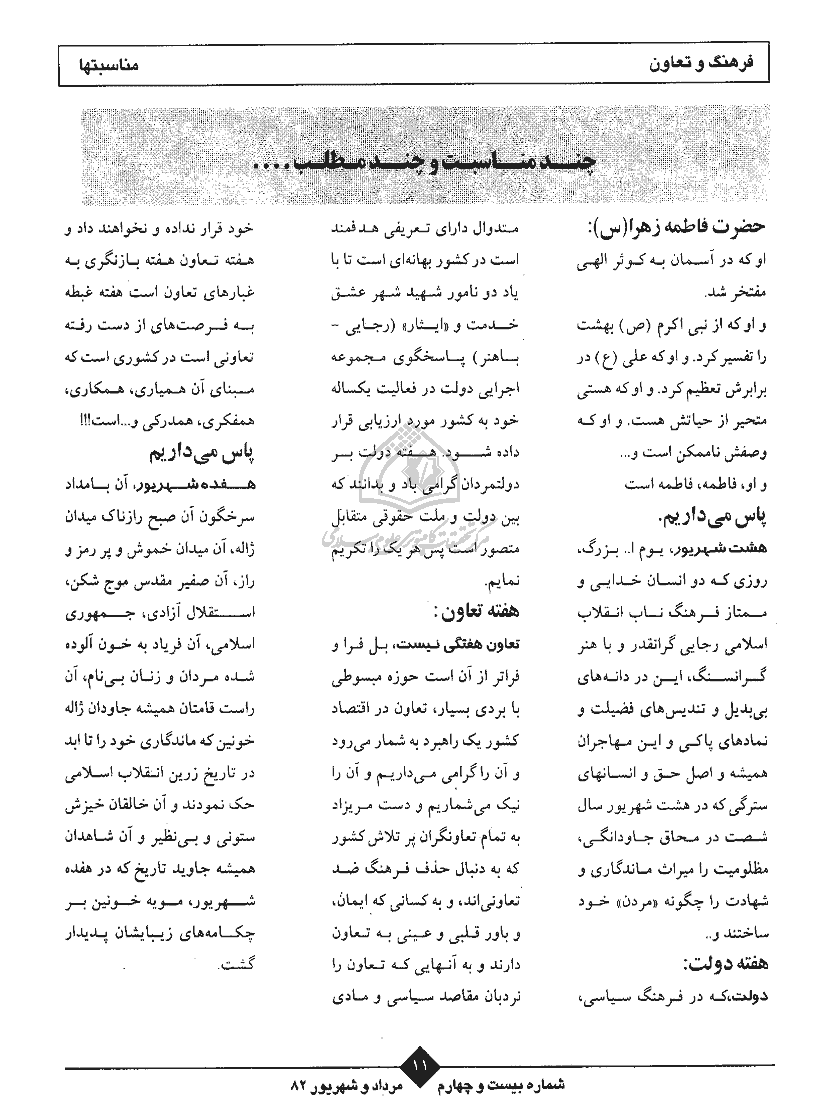 فرهنگ و تعاون
مناسبتها
چند مناسبت و چند مطلب....
حضرت فاطمه زهرا(س):
او که در آسمان به کوثر الهی
مفتخر شد.
و او که از نبی اکرم (ص) بهشت
را تفسیر کرد. و او که علی (ع) در
برابرش تعظیم کرد. و او که هستی
متحیر از حیاتش هست. و او که
وصفش ناممکن است و...
و او، فاطمه، فاطمه است
پاس می‌داریم.
هشت شهریور، یوم ا.. بزرگ،
روزی که دو انسان خدایی و
ممتاز فرهنگ ناب انقلاب
اسلامی رجایی گرانقدر و با هنر
گرانسنگ، این در دانه‌های
بی‌بدیل و تندیس‌های فضیلت و
نمادهای پاکی و این مهاجران
همیشه و اصل حق و انسانهای
سترگی که در هشت شهریور سال
شصت در محاق جاودانگی،
مظلومیت را میراث ماندگاری و
شهادت را چگونه «مردن» خود
ساختند و..
هفته دولت:
دولت،که در فرهنگ سیاسی،
متدوال دارای تعریفی هدفمند
است در کشور بهانه‌ای است تا با
یاد دو نامور شهید شهر عشق
خدمت و «ایثار» (رجایی -
باهنر) پاسخگوی مجموعه
اجرایی دولت در فعالیت یکساله
خود به کشور مورد ارزیابی قرار
داده شود. هفته دولت بر
دولتمردان گرامی باد و بدانند که
بین دولت و ملت حقوقی متقابل
متصور است پس هر یک را تکریم
نمایم.
هفته تعاون:
تعاون هفتگی نیست، بل فرا و
فراتر از آن است حوزه مبسوطی
با بردی بسیار، تعاون در اقتصاد
کشور یک راهبرد به شمار می‌رود
و آن را گرامی می‌داریم و آن را
نیک می‌شماریم و دست مریزاد
به تمام تعاونگران پر تلاش کشور
که به دنبال حذف فرهنگ ضد
تعاونی‌اند، و به کسانی که ایمان،
و باور قلبی و عینی به تعاون
دارند و به آنهایی که تعاون را
نردبان مقاصد سیاسی و مادی
خود قرار نداده و نخواهند داد و
هفته تعاون هفته بازنگری به
غبارهای تعاون است هفته غبطه
به فرصت‌های از دست رفته
تعاونی است در کشوری است که
مبنای آن همیاری، همکاری،
همفکری، همدرکی و...است!!!
پاس می‌داریم
هفده شهریور، آن بامداد
سرخگون آن صبح رازناک میدان
ژاله، آن میدان خموش و پر رمز و
راز، آن صفیر مقدس موج شکن،
استقلال آزادی، جمهوری
اسلامی، آن فریاد به خون آلوده
شده مردان و زنان بی‌نام، آن
راست قامتان همیشه جاودان ژاله
خونین که ماندگاری خود را تا ابد
در تاریخ زرین انقلاب اسلامی
حک نمودند و آن خالقان خیزش
ستونی و بی‌نظیر و آن شاهدان
همیشه جاوید تاریخ که در هفده
شهریور، مویه خونین بر
چکامه‌های زیبایشان پدیدار
گشت.
۱۱
شماره بیست و چهارم
مرداد و شهریور ۸۲